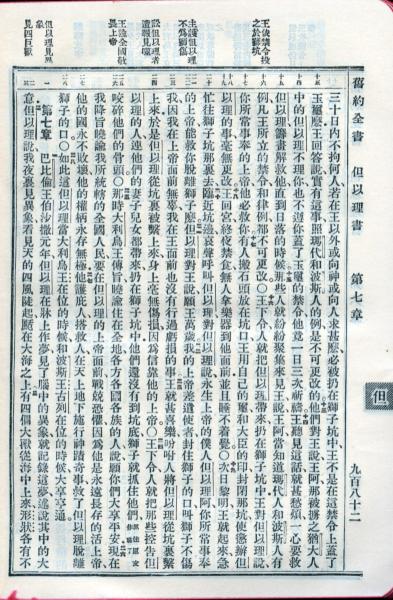 舊約全書 但以理書 第七章 九百八十二
但
之於獅坑
主護但以理
不爲獅傷
訟但以理者
王諭全國敬
畏上帝
但以理見異
象
見四巨獸
三十日內不拘何人若在王以外或向神或向人求甚麼必被扔在獅子坑中王不是在這禁令上蓋了
玉璽麼王回答說實有這事照瑪代和波斯人的例是不可更改的他們對王說王阿那被擄之猶大人
中的但以理不理你也不遵你蓋了玉璽的禁令他竟一日三次祈禱王聽見這話就甚愁煩一心要救
但以理籌畫解救他直到日落的時候那些人就紛紛聚集來見王說王阿當知道瑪代人和波斯人有
例凡王所立的禁令和律例都不可更改〇王下令人就把但以理帶來扔在獅子坑中王對但以理說
你所常事奉的上帝他必救你有人搬石頭放在坑口王用自己的璽和大臣的印封閉那坑使懲辦但
以理的事毫無更改王回宮終夜禁食無人拿樂器到他面前並且睡不着覺〇次日黎明王就起來急
忙往獅子坑那裏去臨近坑邊哀聲呼叫但以理對但以理說永生上帝的僕人但以理阿你所常事奉
的上帝能救你脫離獅子麼但以理對王說願王萬歲我的上帝差遣使者封住獅子的口叫獅子不傷
我因我在上帝面前無辜我在王面前也沒有行過虧損的事王就甚喜樂吩咐人將但以理從坑裏繫
上來於是但以理從坑裏被繫上來身上毫無傷損因爲信靠他的上帝〇王下令人就把那些控告但
以理的人連他們的妻子兒女都帶來扔在獅子坑中他們還沒有到坑底獅子就抓住他們
咬碎他們的骨頭〇那時大利烏王傳旨曉諭住在全地各方各國各族的人說願你們大享平安現在
我降旨曉諭我所統轄的全國人民要在但以理的上帝面前戰兢恐懼因爲他是永遠長存的活上帝
他的國永不敗壞他的權柄永存無極他護庇人搭救人在天上地下施行神蹟奇事救了但以理脫離
獅子的口〇如此這但以理當大利烏王在位的時候和波斯王古列在位的時候大享亨通
第七章 巴比倫王伯沙撒元年但以理在牀上作夢見了腦中的異象就記錄這夢述說其中的大
意但以理說我夜裏見異象看見天的四風陡起颳在大海之上有四個大獸從海中上來形狀各有不